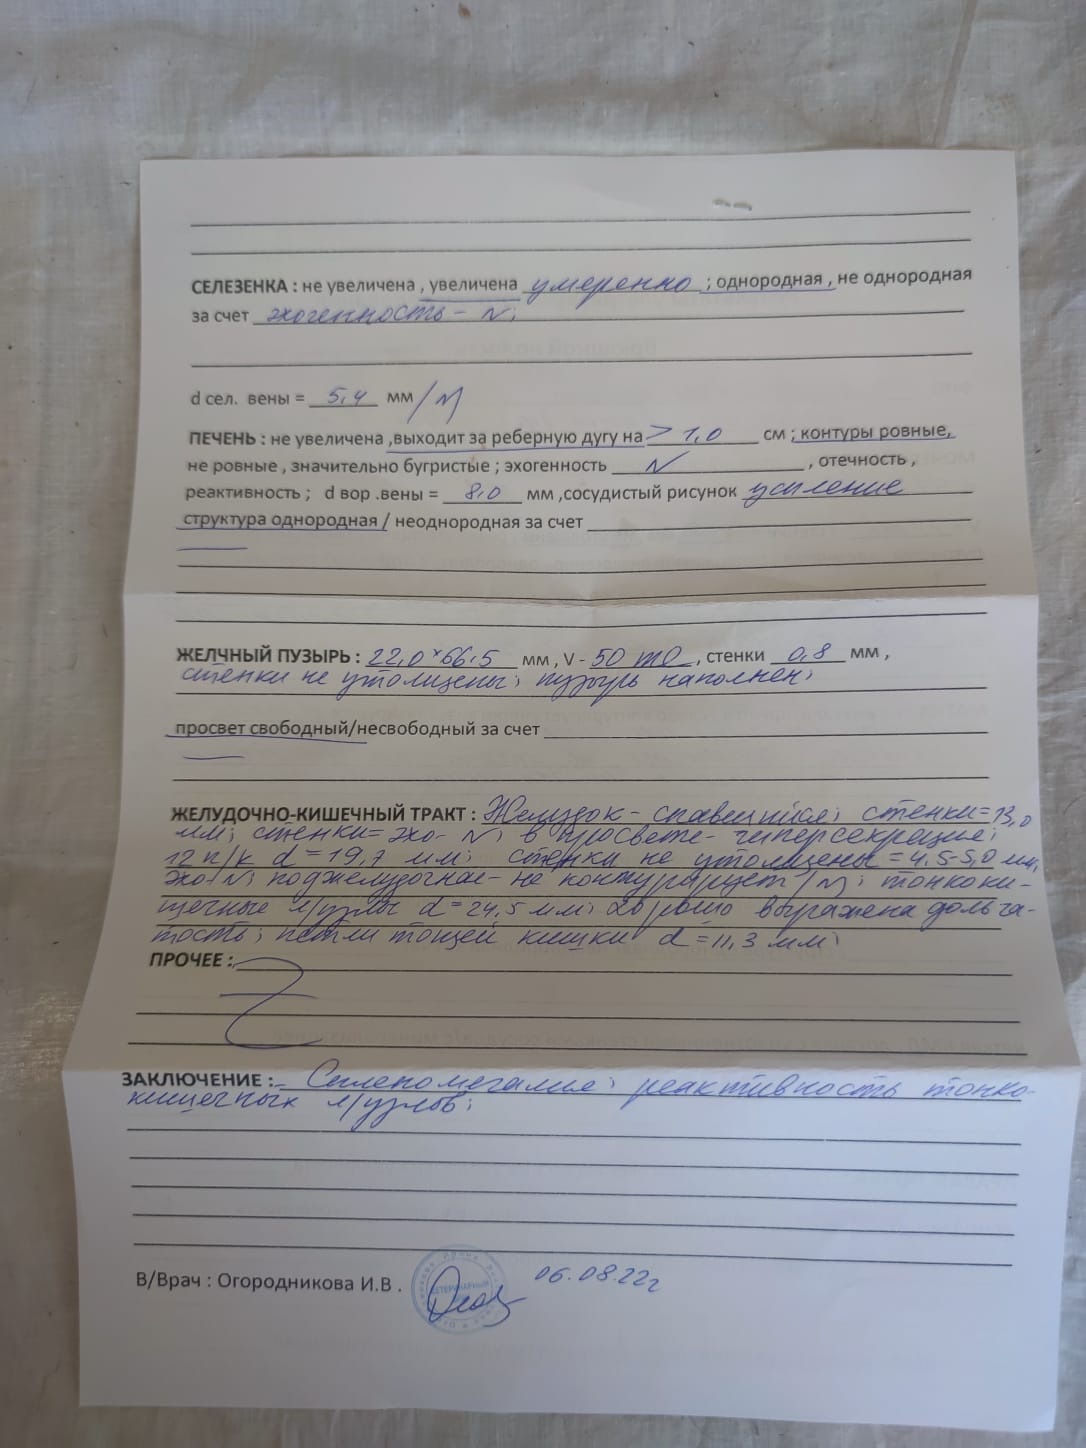 СЕЛЕЗЕНКА : не увеличена , увеличена умеренно ; однородная , не однородная
за счет эхогенность - N;
d сел. вены = 5,4 мм / N
ПЕЧЕНЬ : не увеличена ,выходит за реберную дугу на > 1,0 см ; контуры ровные,
не ровные , значительно бугристые ; эхогенность N , отечность ,
реактивность ; d вор .вены = 8,0 мм ,сосудистый рисунок усиление
структура однородная / неоднородная за счет
ЖЕЛЧНЫЙ ПУЗЫРЬ : 22,0 × 66,5 мм , V - 50 ml , стенки 0,8 мм ,
стенки не утолщены; пузырь наполнен;
просвет свободный/несвободный за счет
ЖЕЛУДОЧНО-КИШЕЧНЫЙ ТРАКТ : Желудок - спавшийся; стенки = 13,0
мм; стенки = эхо - N; в просвете - гиперсекреция;
12 п/к d = 19,7 мм; стенки не утолщены = 4,5-5,0 мм;
эхо-N; поджелудочная - не контурирует / N; тонкоки-
шечные л/узлы d = 24,5 мм; хорошо выражена дольча-
тость; петли тощей кишки d = 11,3 мм;
ПРОЧЕЕ :
ЗАКЛЮЧЕНИЕ : Спленомегалия; реактивность тонко-
кишечных л/узлов;
В/Врач : Огородникова И.В .
06.08.22г